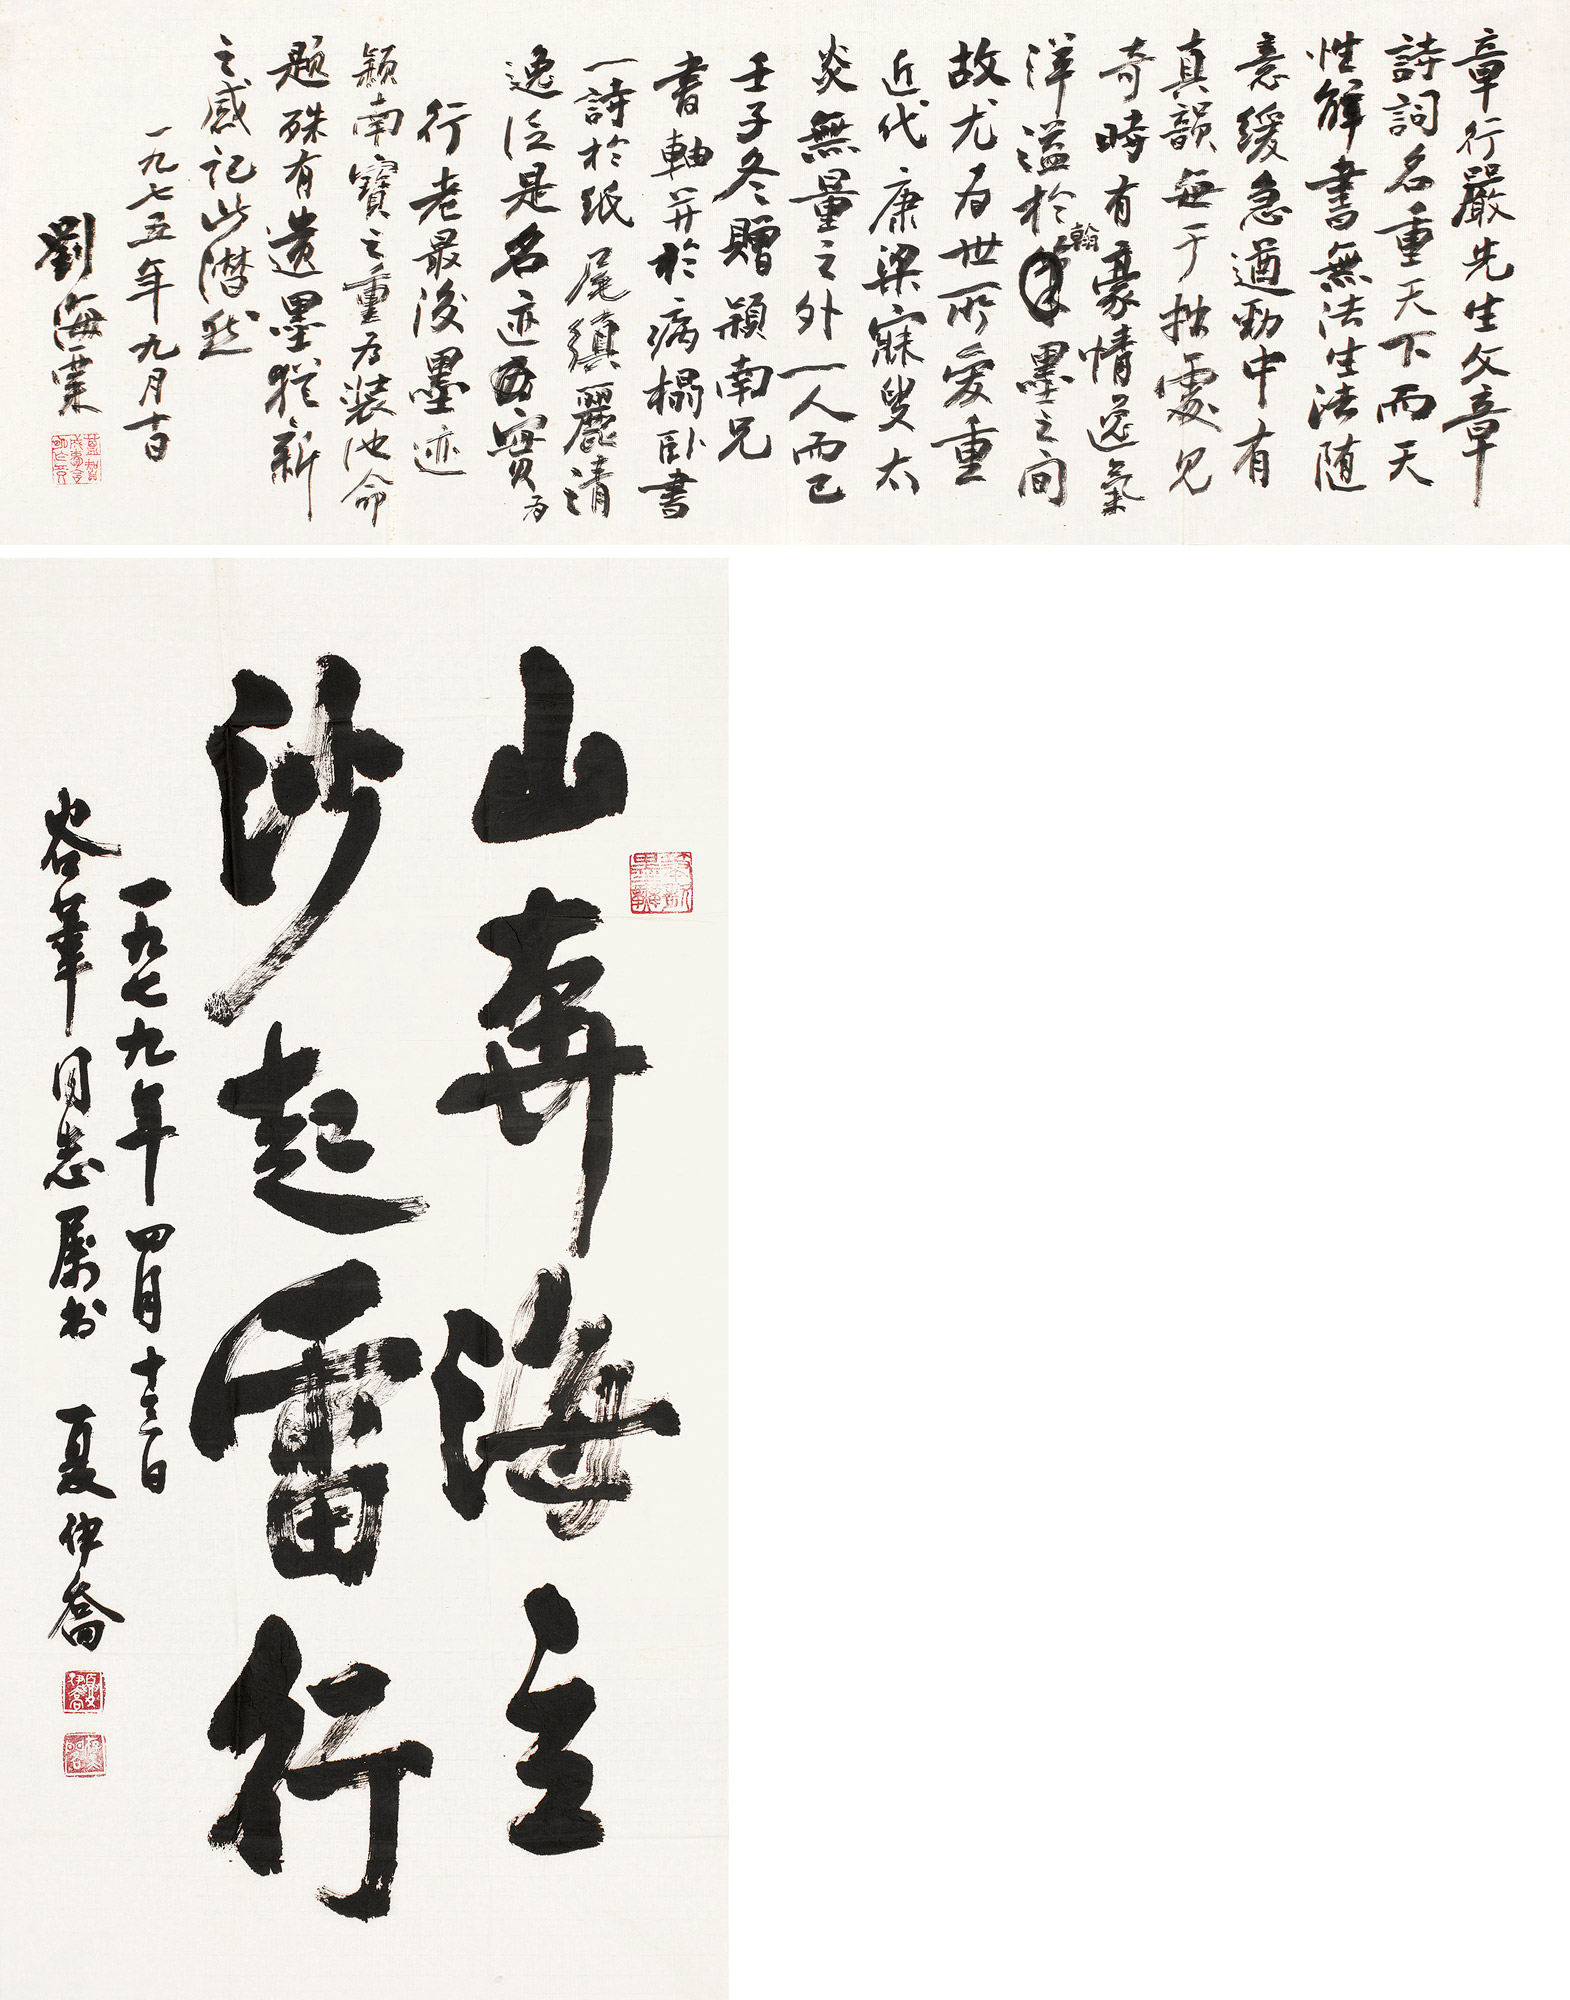 章行嚴先生文章
詩詞名重天下而天
性解書無法生法随
意緩急遒勁中有
真韻每于拙處見
奇時有豪情逸氣
洋溢於翰墨之间
故尤为世所爱重
近代康梁寐叟太
炎無量之外一人而已
壬子冬贈颖南兄
書軸并於病榻卧書
一詩於纸尾縝麗清
逸洵是名迹可寳为
行老最後墨迹
颖南寳之重为装池命
题殊有遗墨猶新
之感记此潸然
一九七五年九月十日
劉海粟
山奔海立
沙起雷行
一九七九年四月十三日
谷葦同志属书 夏伊喬